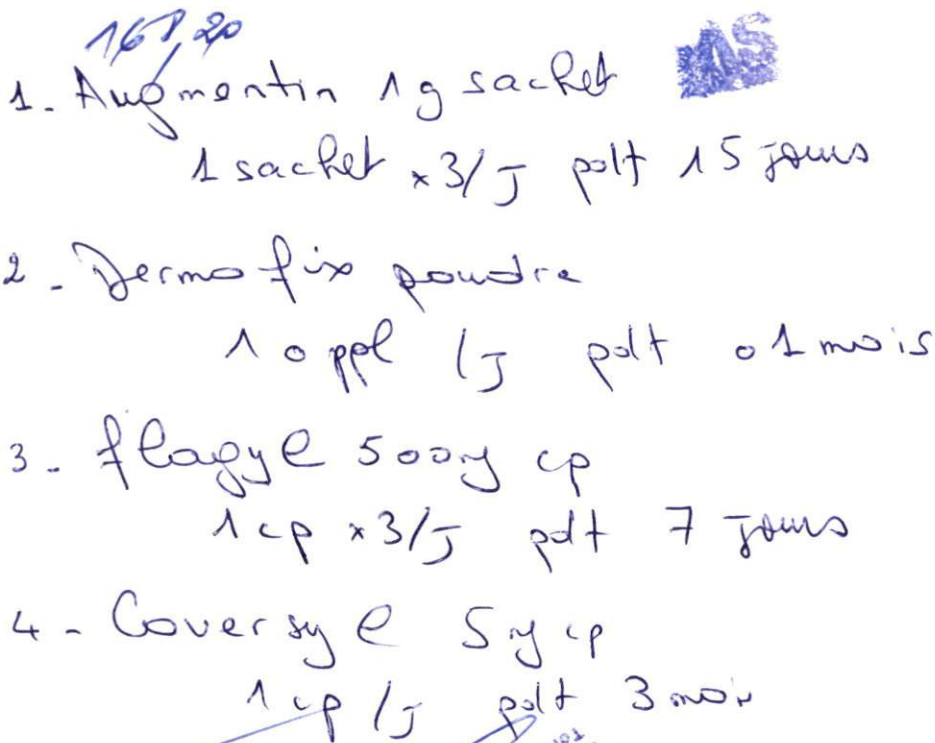 161,20
1- Augmentin 1g sachet
1 sachet x3/J pdt 15 jours
2 - Dermofix poudre
1 appl /J pdt 01 mois
3 - flagyl 500mg cp
1cp x3/J pdt 7 jours
4 - Coversyl 5mg cp
1cp /J pdt 3 mois